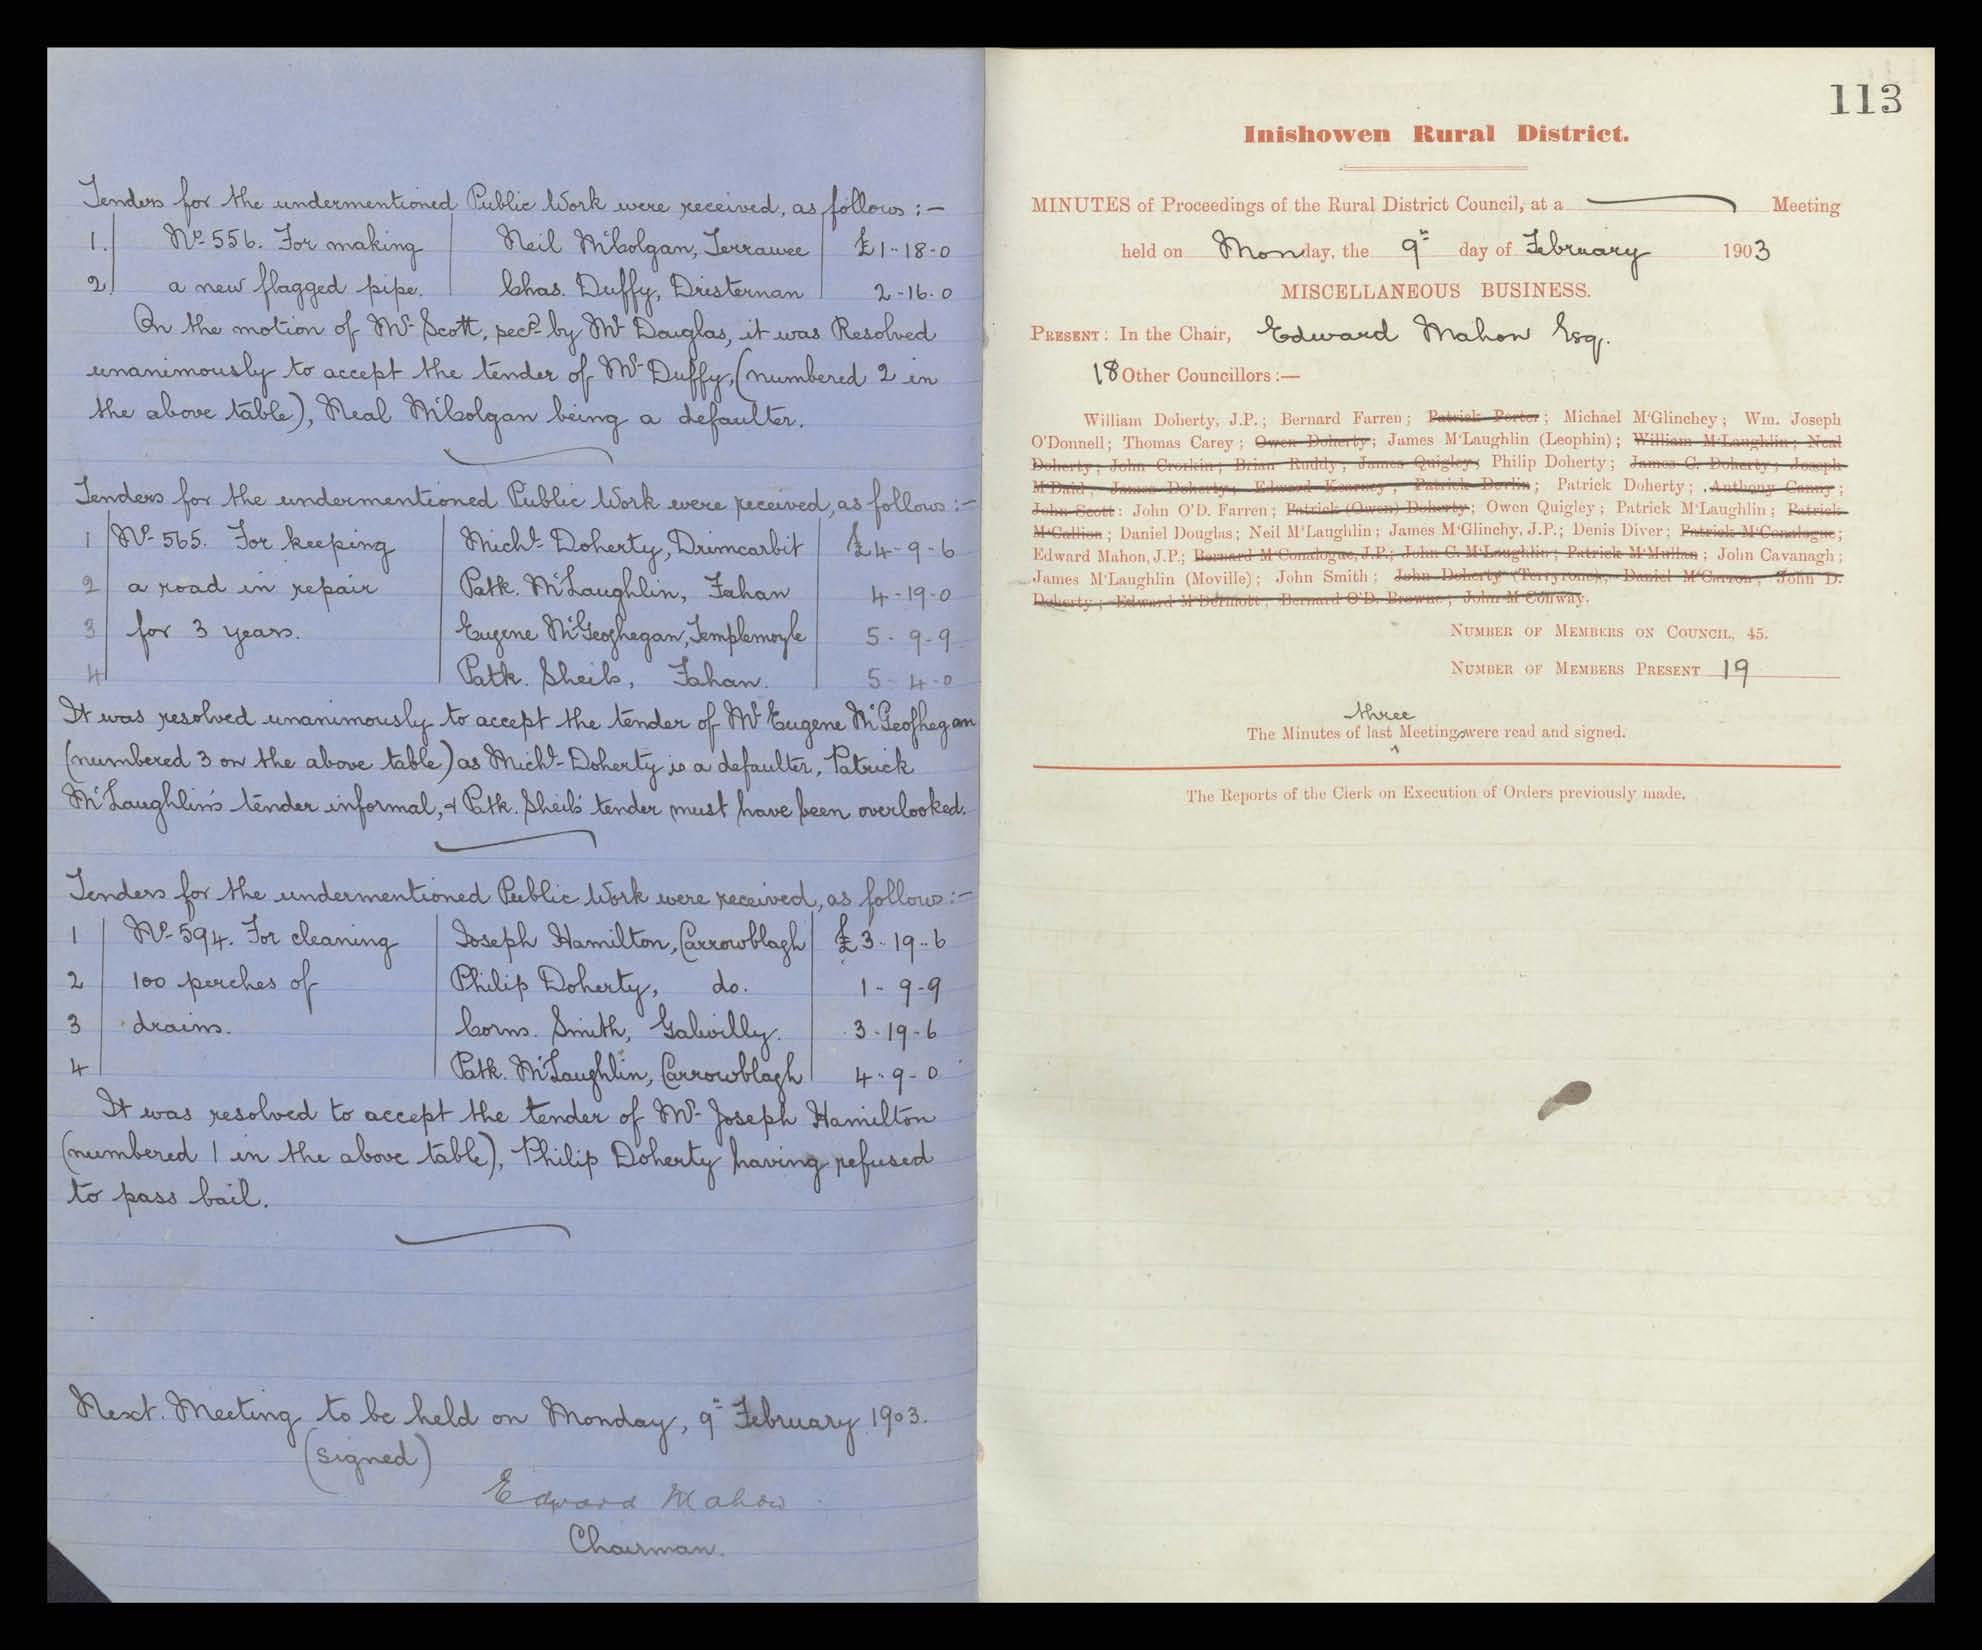 Tenders for the undermentioned Public Work were received, as follows :-
1. No. 556. For making Neil McColgan, Terrawee £1-18-0
2. a new flagged pipe. Chas. Duffy, Dristernan 2-16-0
On the motion of Mr Scott, secd. by Mr Douglas, it was Resolved
unanimously to accept the tender of Mr Duffy, (numbered 2 in
the above table), Neal McColgan being a defaulter.
Tenders for the undermentioned Public Work were received, as follows :-
1 No. 565. For keeping Michl. Doherty, Drimcarbit £4-9-6
2 a road in repair Patk. McLaughlin, Fahan 4-19-0
3 for 3 years. Eugene McGeoghegan, Templemoyle 5-9-9
4 Patk. Sheils, Fahan. 5-4-0
It was resolved unanimously to accept the tender of Mr Eugene McGeoghegan
(numbered 3 on the above table) as Michl. Doherty is a defaulter, Patrick
McLaughlin's tender informal, & Patk. Sheils' tender must have been overlooked.
Tenders for the undermentioned Public Work were received, as follows :-
1 No. 594. For cleaning Joseph Hamilton, Carrowblagh £3-19-6
2 100 perches of Philip Doherty, do. 1-9-9
3 drains. Corns. Smith, Galwilly. 3-19-6
4 Patk. McLaughlin, Carrowblagh 4-9-0
It was resolved to accept the tender of Mr Joseph Hamilton
(numbered 1 in the above table), Philip Doherty having refused
to pass bail.
Next Meeting to be held on Monday, 9th February 1903.
(signed)
Edward Mahon
Chairman.
113
Inishowen Rural District.
MINUTES of Proceedings of the Rural District Council, at a Meeting
held on Monday, the 9th day of February 1903
MISCELLANEOUS BUSINESS.
PRESENT: In the Chair, Edward Mahon Esq.
18 Other Councillors :—
William Doherty, J.P.; Bernard Farren; Patrick Porter; Michael M'Glinchey; Wm. Joseph
O'Donnell; Thomas Carey; Owen Doherty; James M'Laughlin (Leophin); William M'Laughlin; Neal
Doherty; John Crorkin; Brian Ruddy; James Quigley; Philip Doherty; James C. Doherty; Joseph
M'Daid; James Doherty; Edward Kearney; Patrick Devlin; Patrick Doherty; Anthony Canny;
John Scott: John O'D. Farren; Patrick (Owen) Doherty; Owen Quigley; Patrick M'Laughlin; Patrick
M'Callion; Daniel Douglas; Neil M'Laughlin; James M'Glinchy, J.P.; Denis Diver; Patrick M'Conalogue;
Edward Mahon, J.P.; Bernard M'Conalogue, J.P.; John C. M'Laughlin; Patrick M'Mullan; John Cavanagh;
James M'Laughlin (Moville); John Smith; John Doherty (Terryrone); Daniel M'Carron; John D.
Doherty; Edward M'Dermott; Bernard O'D. Browne; John M'Conway.
NUMBER OF MEMBERS ON COUNCIL, 45.
NUMBER OF MEMBERS PRESENT 19
three
The Minutes of last Meetings were read and signed.
The Reports of the Clerk on Execution of Orders previously made.